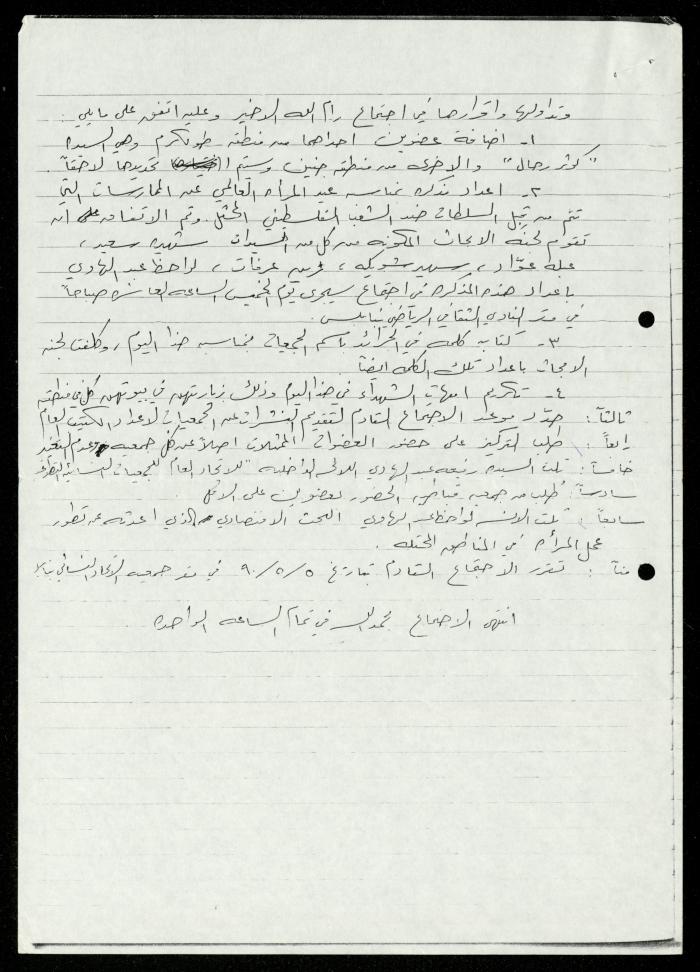 وتداولها واقرارها في اجتماع رام الله الاخير وعليه اتفق على مايلي :
١- اضافة عضوين احداهما من منطقة طولكرم وهي السيدة
"كوثر رحال" والاخرى من منطقة جنين وسيتم تحديدها لاحقاً .
٢- اعداد مذكرة بمناسبة عيد المرأة العالمي عن الممارسات التي
تتم من قبل السلطات ضد الشعب الفلسطيني المحتل . وتم الاتفاق على ان
تقوم لجنة الابحاث المكونة من كل من السيدات سعيد ،
عبلة عوّاد ، ، عرفات ، لواحظ عبد الهادي
باعداد هذه المذكرة في اجتماع سيجري يوم الخميس الساعة العاشرة صباحاً
في مقر النادي الثقافي الرياضي بنابلس .
٣- كتابة كلمة في الجرائد باسم الجمعيات بمناسبة هذا اليوم ، وكلفت لجنة
الابحاث باعداد تلك الكلمة ايضاً .
٤- تكريم امهات الشهداء في هذا اليوم وذلك بزيارتهن في بيوتهن كل في منطقته
ثالثاً : حدد موعد الاجتماع القادم لتقديم النشرات عن الجمعيات لاعداد الكتيب العام
رابعاً : طلب التركيز على حضور العضوات الممثلات اصلاً عن كل جمعية وعدم التغير
خامساً : تلت السيدة ربيعة عبد الهادي اللائحة الداخلية "للاتحاد العام للجمعيات النسائية التطوعية
سادساً : طلب من جمعية قباطية الحضور لعضوين على الاقل
سابعاً : تلت الانسة لواحظ عبد الهادي البحث الاقتصادي الذي اعدته عن تطور
عمل المرأة في المناطق المحتلة .
ثامناً : تقرر الاجتماع القادم بتاريخ ٩٠/٥/٥ في مقر جمعية الاتحاد النسائي نابلس
انتهى الاجتماع بحمد الله في تمام الساعة الواحدة